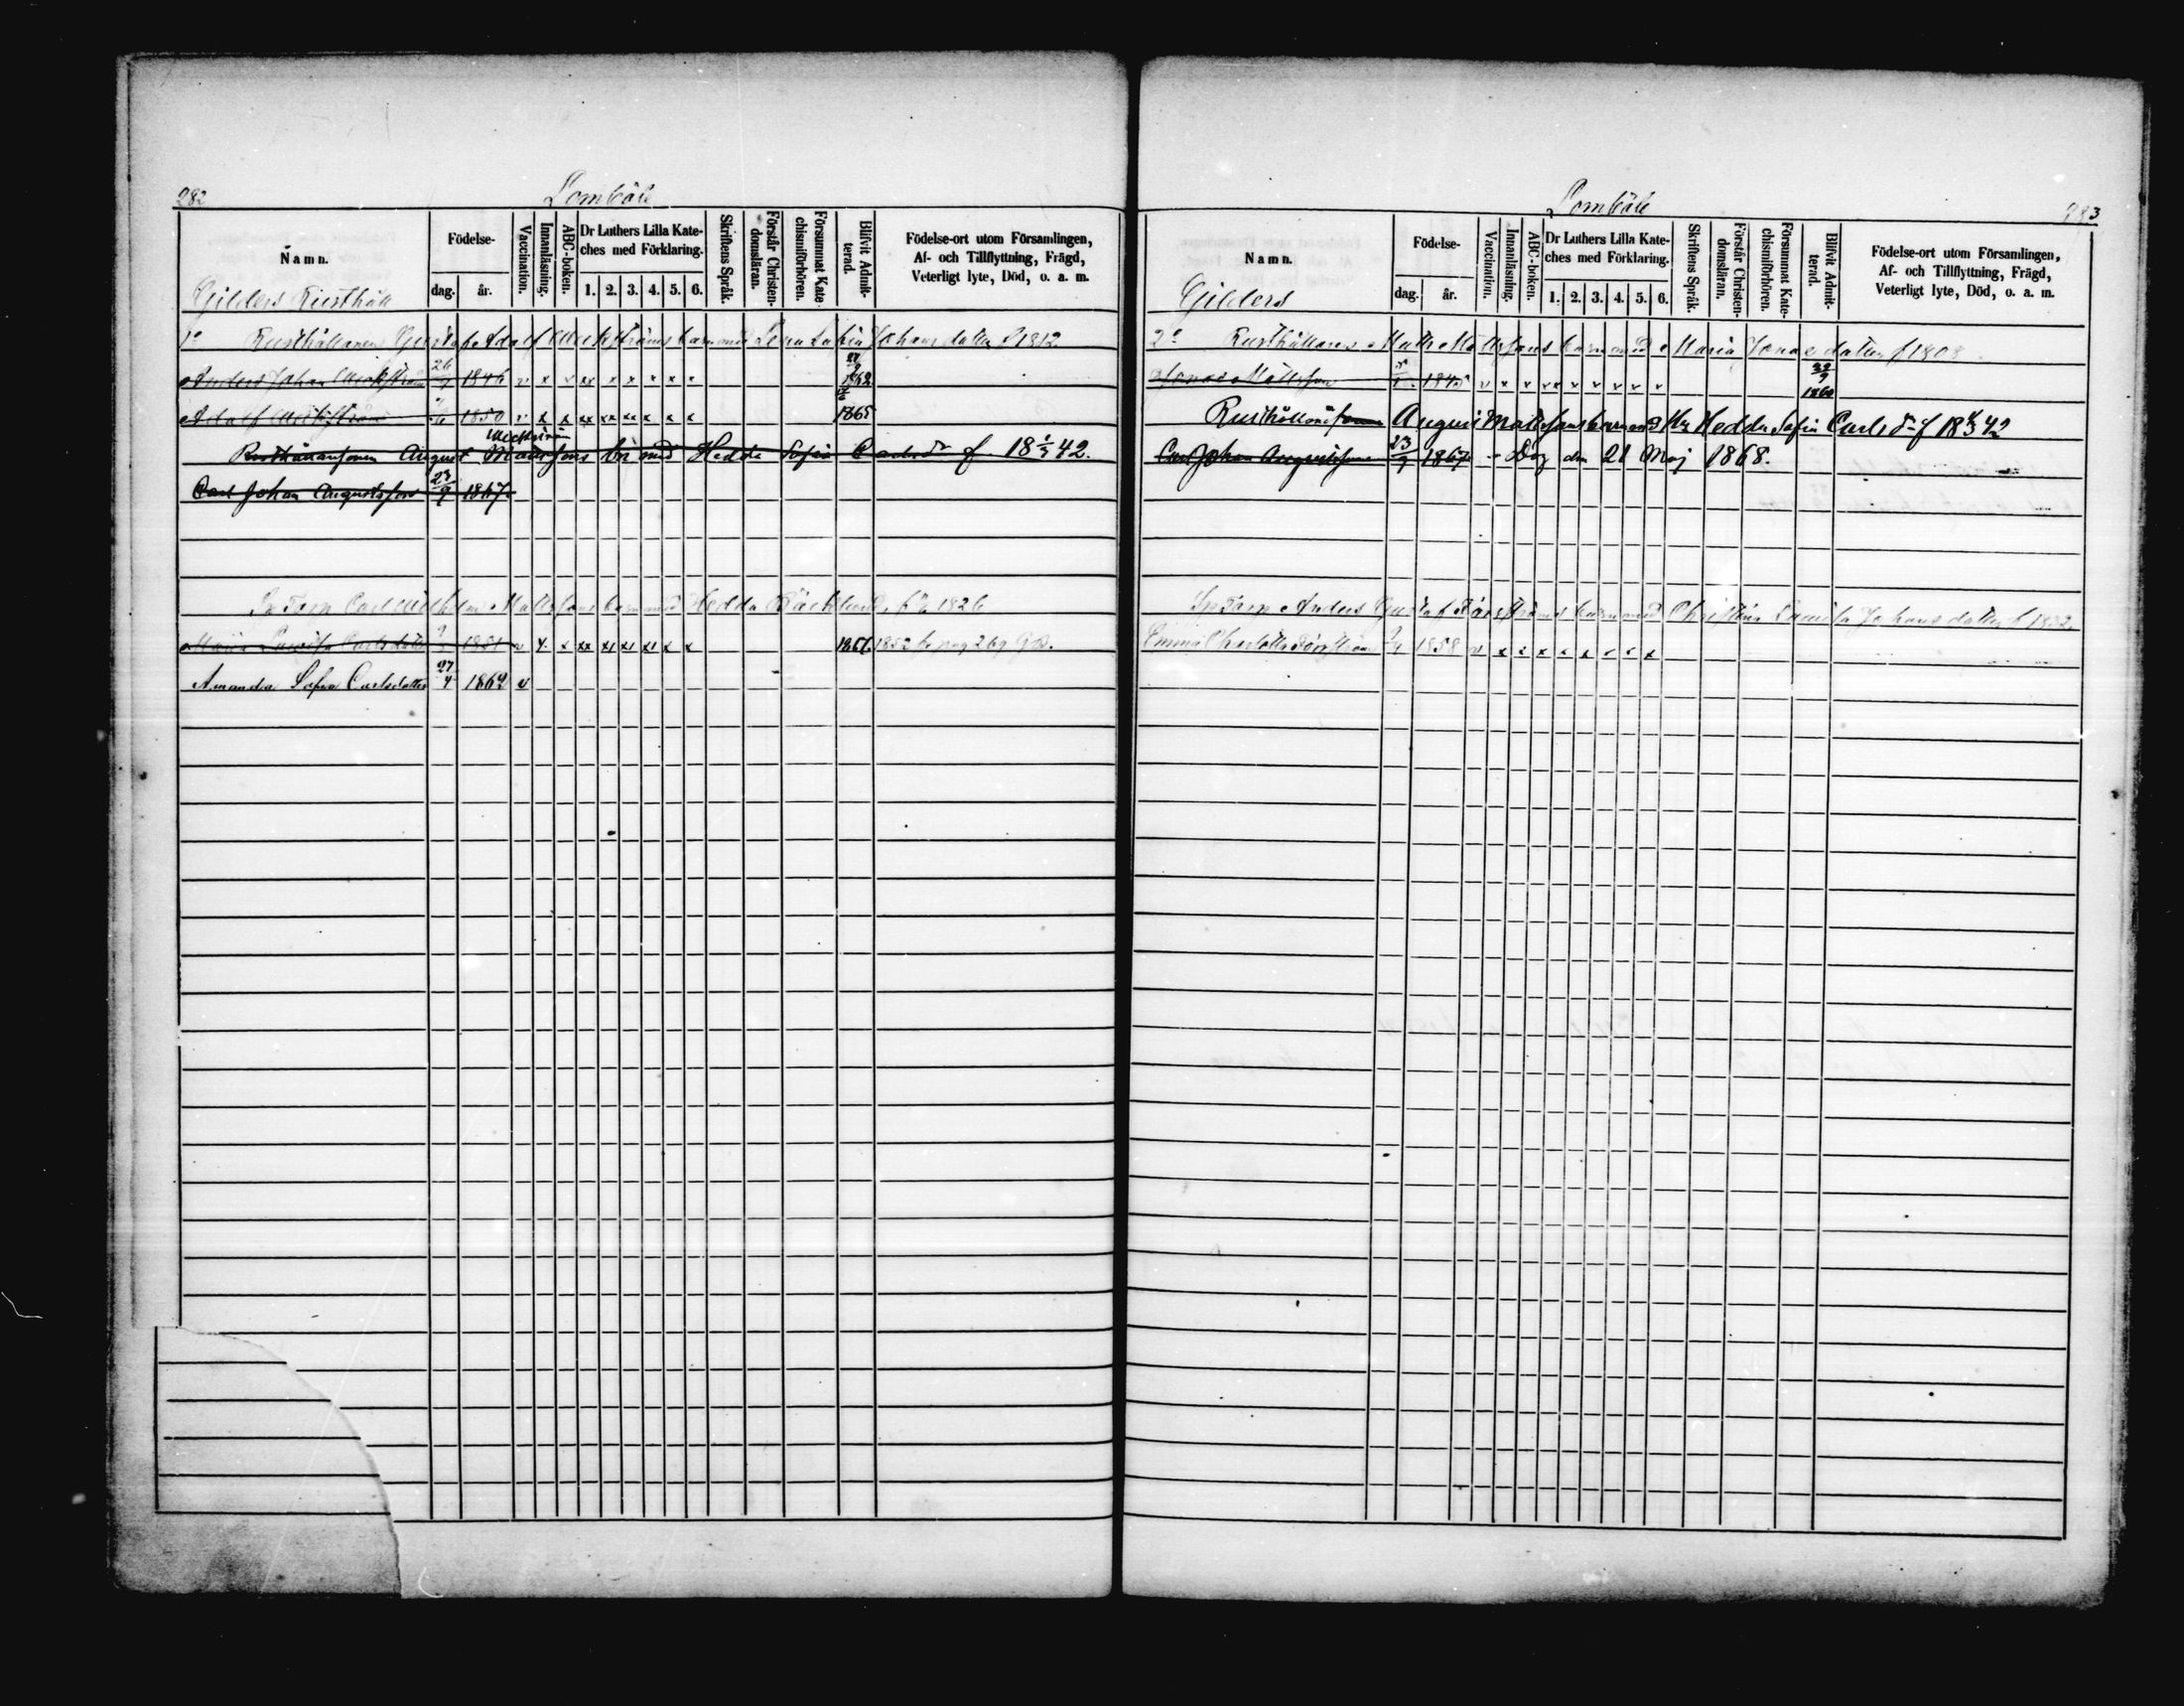 282
Lomböle
Namn.
Födelse-
dag.
år.
Vaccination.
Innanläsning.
ABC-boken.
Dr Luthers Lilla Kate-
ches med Förklaring.
1. 2. 3. 4. 5. 6.
Skriftens Språk.
Förstår Christen-
domsläran.
Försummat Kate-
chismiförhören.
Blifvit Admit-
terad.
Födelse-ort utom Församlingen,
Af- och Tillflyttning, Frägd,
Veterligt lyte, Död, o. a. m.
Gilders Rusthåll
1o Rusthållaren Gustaf Adolf barn med Lena Johansdatter f 1812
Anders Johan 26 1846 v x x xx x x x x x 1862
Adolf 1850 v x x xx x xx x x x 1865
Rusthållarsonen August Mattssons bn med Hedda Sofia Carlsdr f. 18 1/3 42.
Carl Johan Augustsson 23/9 1867
Carl Wilhelm Mattssons barn med Hedda Bäcklund, 1826
Maria Lovisa Carlsdatter 1851 v x x xx x x x x x 1867 1852 pag 269
Amanda Sofia Carlsdatter 27/4 1862 v
283
Lomböle
Namn.
Födelse-
dag.
år.
Vaccination.
Innanläsning.
ABC-boken.
Dr Luthers Lilla Kate-
ches med Förklaring.
1. 2. 3. 4. 5. 6.
Skriftens Språk.
Förstår Christen-
domsläran.
Försummat Kate-
chismiförhören.
Blifvit Admit-
terad.
Födelse-ort utom Församlingen,
Af- och Tillflyttning, Frägd,
Veterligt lyte, Död, o. a. m.
Gilders
2o Rusthållaren Matts Mattssons barn med Maria Jonaedatter f 1808
Jonas Mattsson 1845 v x x xx x x x x x 1860
Rusthållaresonen August Mattssons barn med Hedda Sofia Carlsdr f 18 1/3 42
Carl Johan Augustsson 23/9 1867 Dog den 21 Maj 1868.
Anders Gustaf barn med Christina Lovisa Johansdatter f 1832
Emma Charlotta 1858 v x x x x x x x x